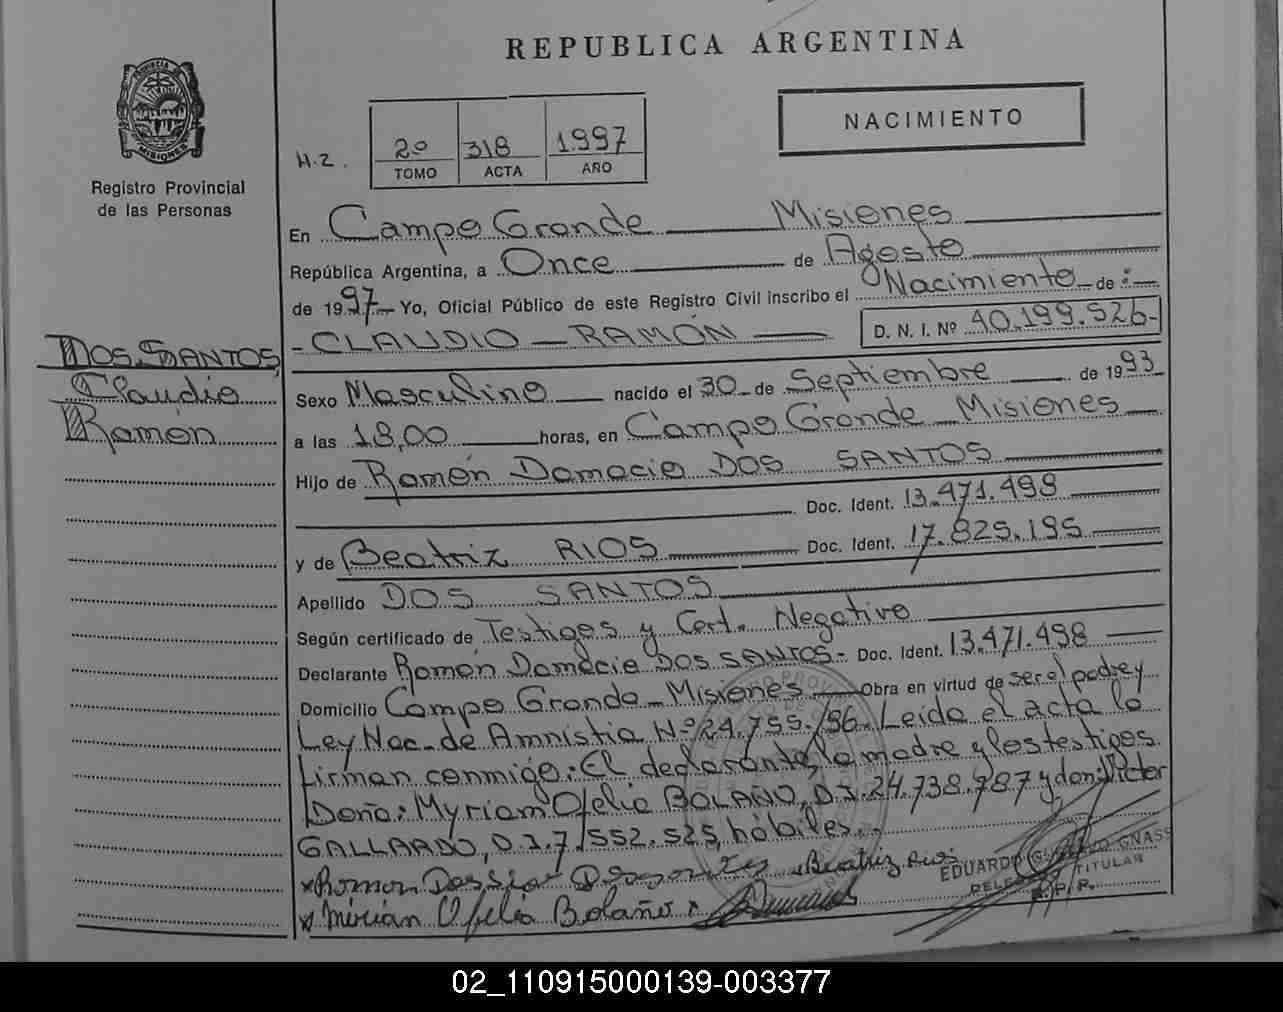 REPUBLICA ARGENTINA
PROVINCIA DE
MISIONES
Registro Provincial
de las Personas
NACIMIENTO
H.Z. 2º 318 1997
TOMO ACTA AÑO
En Campo Grande Misiones
República Argentina, a Once de Agosto
de 1997 Yo, Oficial Público de este Registro Civil inscribo el Nacimiento de :
- CLAUDIO - RAMÓN D. N. I. Nº 40.199.526-
DOS SANTOS
Claudio
Ramón
Sexo Masculino nacido el 30 de Septiembre de 1993
a las 18,00 horas, en Campo Grande Misiones
Hijo de Ramón Damacio DOS SANTOS
Doc. Ident. 13.471.498
y de Beatriz RIOS Doc. Ident. 17.825.195
Apellido DOS SANTOS
Según certificado de Testigos y Cert. Negativo
Declarante Ramón Damacio DOS SANTOS- Doc. Ident. 13.471.498
Domicilio Campo Grande - Misiones Obra en virtud de ser el padre y
Ley Nac. de Amnistia Nº 24.755./96. Leída el acta la
firman conmigo: El declarante, la madre y los testigos.
Doña: Myriam Ofelia BOLAÑO, D.I. 24.738.787 y don:
GALLARDO, D.I. 7.552.525, hábiles.
x Ramon x Beatriz Rios
EDUARDO GNASS
TITULAR
R.P.P.
x Mirian Ofelia Bolaño x
02_110915000139-003377